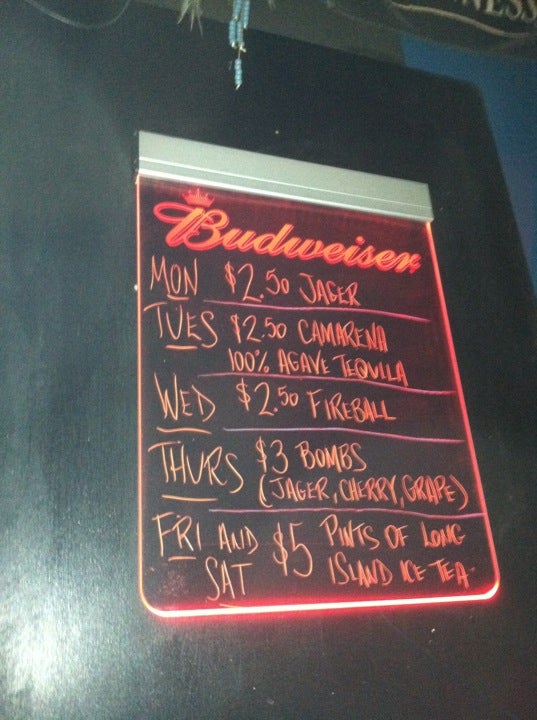 NESS
Budweiser
MON $2.50 JAGER
TUES $2.50 CAMARENA
100% AGAVE TEQUILA
WED $2.50 FIREBALL
THURS $3 BOMBS
(JAGER, CHERRY, GRAPE)
FRI AND SAT $5 PINTS OF LONG
ISLAND ICE TEA